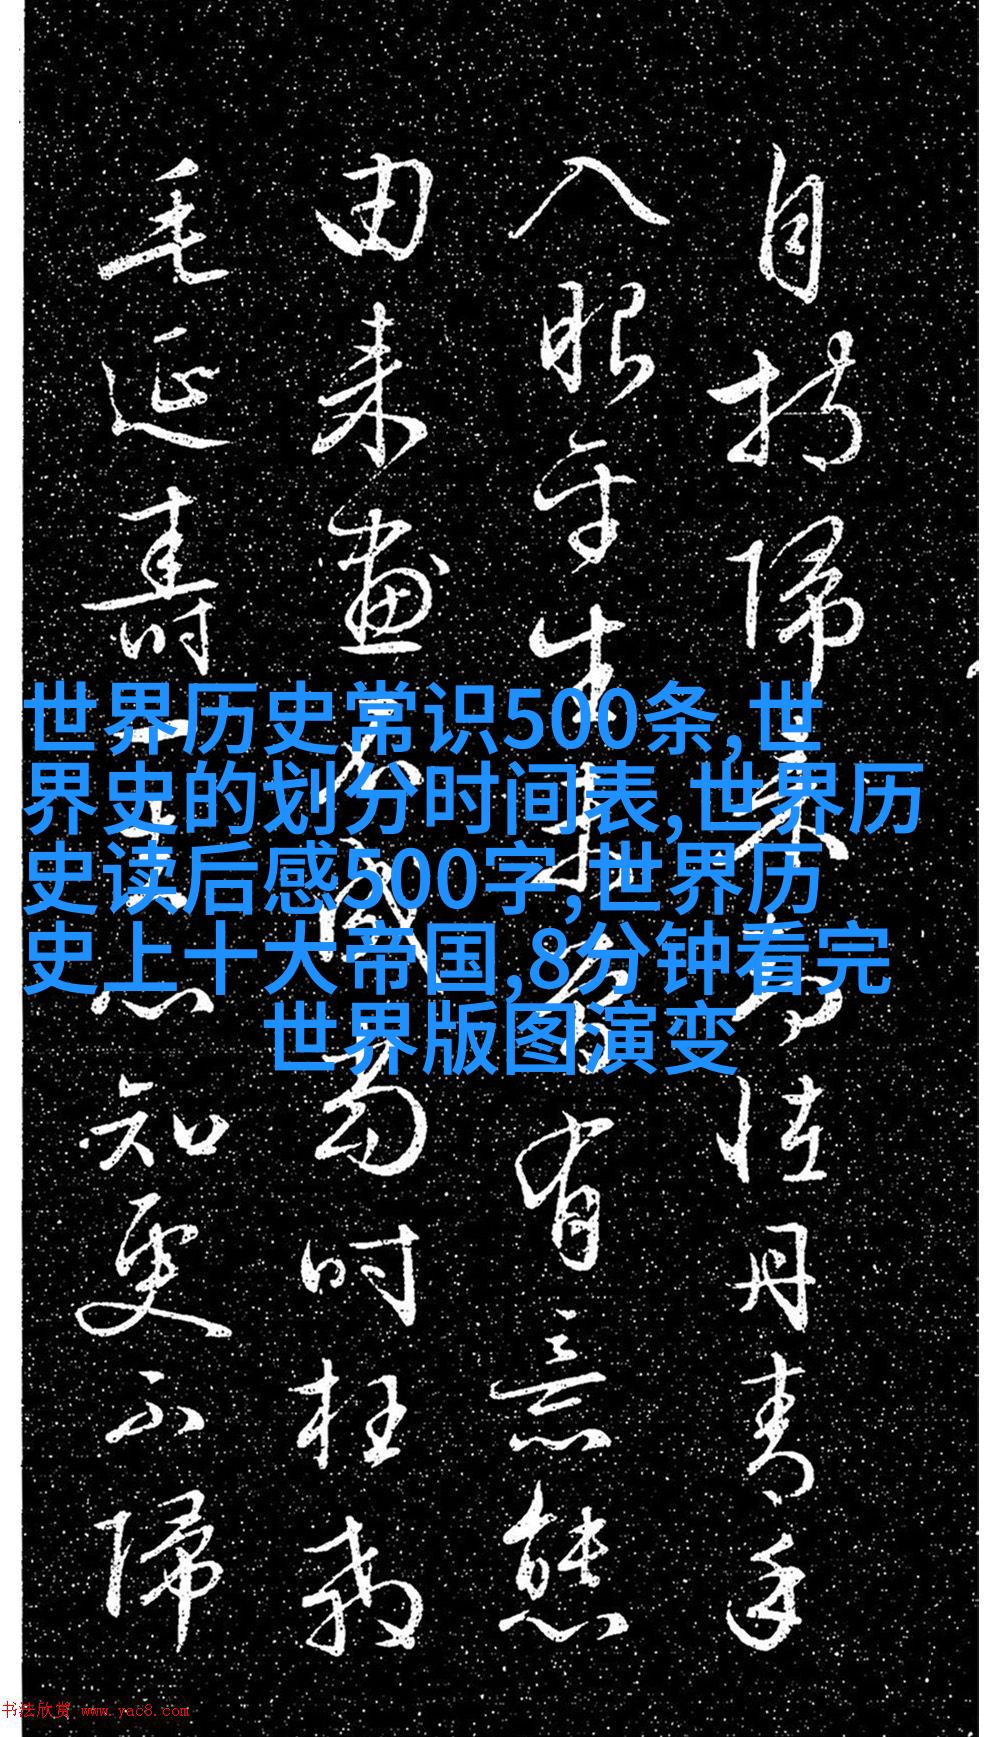 世界历史常识500条,世
界史的划分时间表,世界历
史读后感500字,世界历
史上十大帝国,8分钟看完
世界版图演变
自持歸来却怪丹青手
入眼平生曾有意態
由来畫不成當时枉殺
毛延壽一去心知更不歸
书法欣赏 www.yac8.com